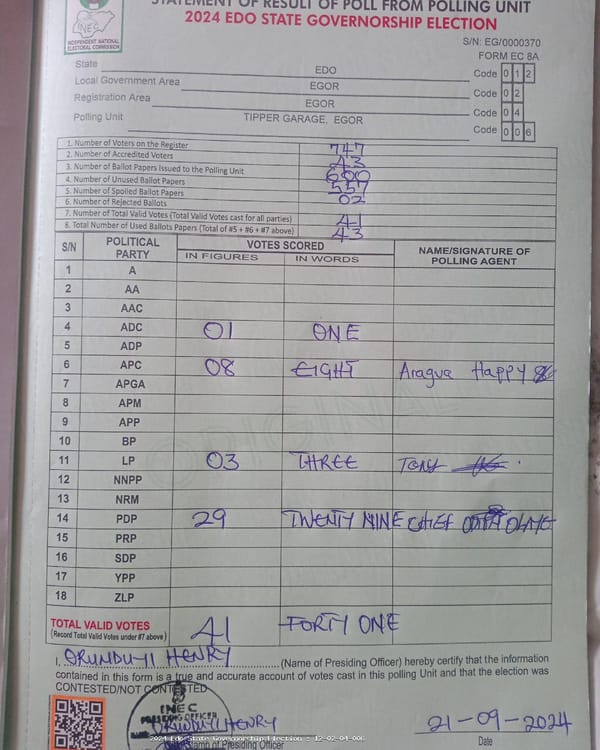 STATEMENT OF RESULT OF POLL FROM POLLING UNIT
2024 EDO STATE GOVERNORSHIP ELECTION
INEC
INDEPENDENT NATIONAL
ELECTORAL COMMISSION
S/N: EG/0000370
FORM EC 8A
State EDO Code 0 1 2
Local Government Area EGOR Code 0 2
Registration Area EGOR Code 0 4
Polling Unit TIPPER GARAGE, EGOR Code 0 0 6
1. Number of Voters on the Register 747
2. Number of Accredited Voters 43
3. Number of Ballot Papers Issued to the Polling Unit 600
4. Number of Unused Ballot Papers 557
5. Number of Spoiled Ballot Papers
6. Number of Rejected Ballots 02
7. Number of Total Valid Votes (Total Valid Votes cast for all parties) 41
8. Total Number of Used Ballots Papers (Total of #5 + #6 + #7 above) 43
S/N POLITICAL PARTY VOTES SCORED NAME/SIGNATURE OF POLLING AGENT
IN FIGURES IN WORDS
1 A
2 AA
3 AAC
4 ADC 01 ONE
5 ADP
6 APC 08 EIGHT Aragua Happy
7 APGA
8 APM
9 APP
10 BP
11 LP 03 THREE TONY
12 NNPP
13 NRM
14 PDP 29 TWENTY NINE CHIEF
15 PRP
16 SDP
17 YPP
18 ZLP
ORIGINAL
TOTAL VALID VOTES 41 FORTY ONE
(Record Total Valid Votes under #7 above)
I, ORUNDUYI HENRY (Name of Presiding Officer) hereby certify that the information
contained in this form is a true and accurate account of votes cast in this polling Unit and that the election was
CONTESTED/NOT CONTESTED
INEC
PRESIDING OFFICER
ORUNDUYI HENRY
21-09-2024
2024 Edo State Governorship Election - 12-02-04-006
Stamp of Presiding Officer
Date